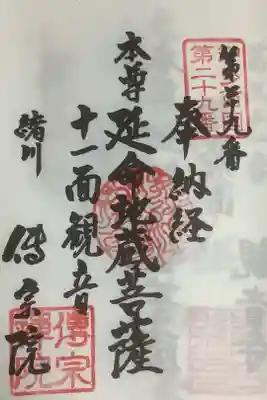 第二十九番
第二十九番
奉納経
本尊 延命地蔵菩薩
十一面観音
緒川
傳宗院
傳宗
禪院